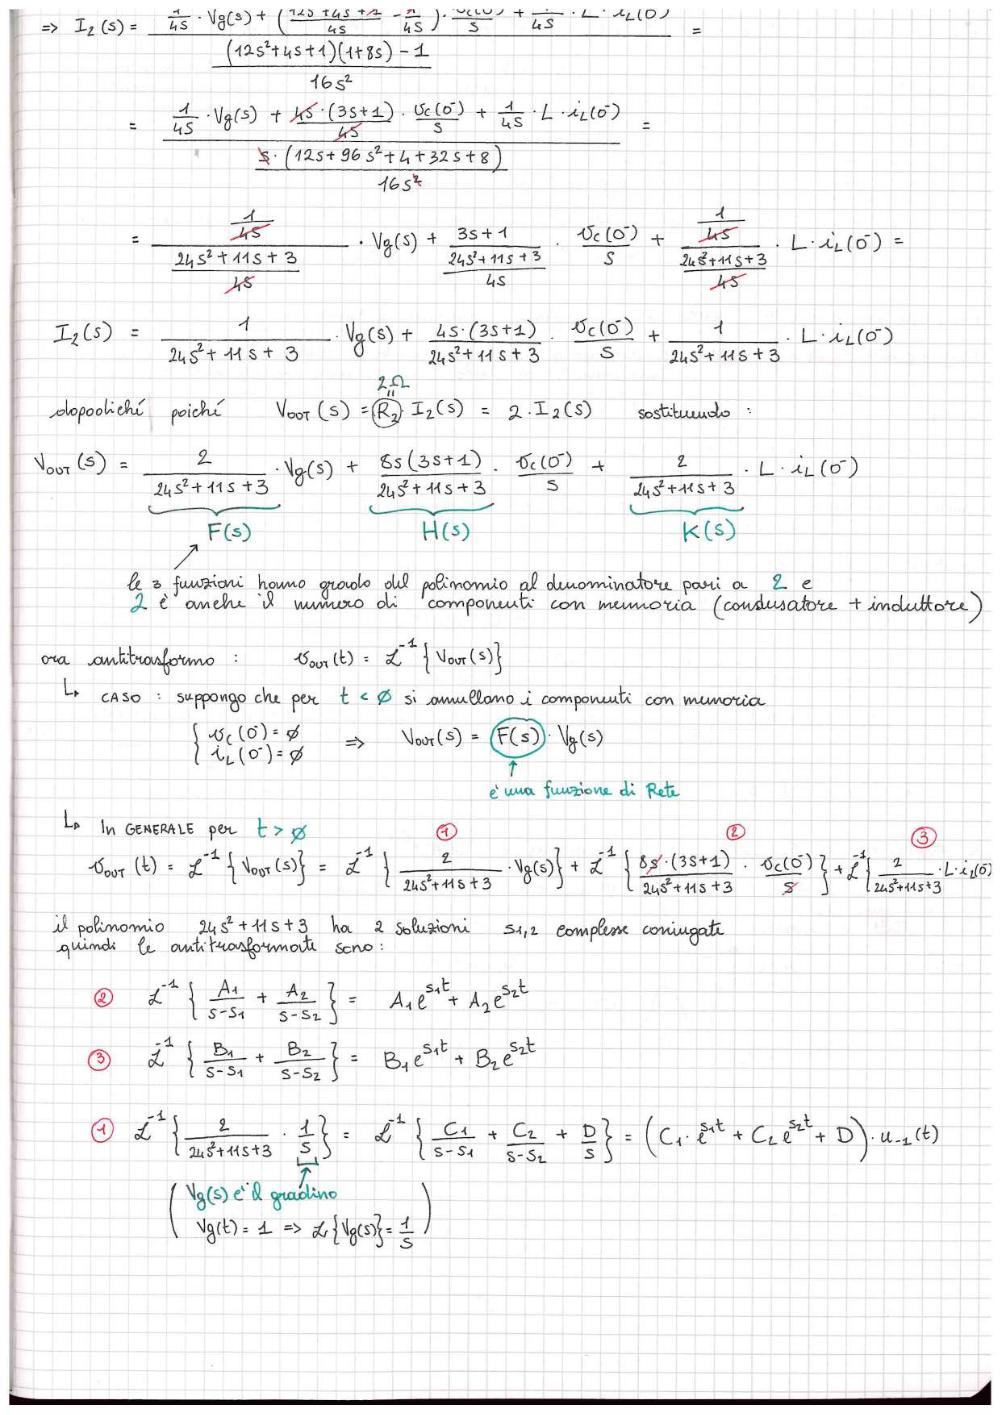 => I₂(s) = (1/4s · Vg(s) + ((12s²+4s+1)/4s − 1/4s) · vc(0⁻)/s + 1/4s · L · iL(0⁻)) / (((12s²+4s+1)(1+8s) − 1)/16s²) =
= (1/4s · Vg(s) + 4s·(3s+1)/4s · vc(0⁻)/s + 1/4s · L · iL(0⁻)) / (s·(12s+96s²+4+32s+8)/16s²) =
= (1/4s)/((24s²+11s+3)/4s) · Vg(s) + (3s+1)/((24s²+11s+3)/4s) · vc(0⁻)/s + (1/4s)/((24s²+11s+3)/4s) · L · iL(0⁻) =
I₂(s) = 1/(24s²+11s+3) · Vg(s) + 4s·(3s+1)/(24s²+11s+3) · vc(0⁻)/s + 1/(24s²+11s+3) · L · iL(0⁻)
2Ω
dopodiché poiché Vout(s) = R₂ I₂(s) = 2 · I₂(s) sostituendo :
Vout(s) = 2/(24s²+11s+3) · Vg(s) + 8s(3s+1)/(24s²+11s+3) · vc(0⁻)/s + 2/(24s²+11s+3) · L · iL(0⁻)
F(s) H(s) K(s)
le 3 funzioni hanno grado del polinomio al denominatore pari a 2 e
2 è anche il numero di componenti con memoria (condensatore + induttore)
ora antitrasformo : vout(t) = ℒ⁻¹{Vout(s)}
↳ CASO : suppongo che per t < ∅ si annullano i componenti con memoria
{ vc(0⁻) = ∅ iL(0⁻) = ∅ => Vout(s) = F(s) · Vg(s)
è una funzione di Rete
↳ In GENERALE per t > ∅ ① ② ③
vout(t) = ℒ⁻¹{Vout(s)} = ℒ⁻¹{2/(24s²+11s+3) · Vg(s)} + ℒ⁻¹{8s·(3s+1)/(24s²+11s+3) · vc(0⁻)/s} + ℒ⁻¹{2/(24s²+11s+3) · L · iL(0⁻)
il polinomio 24s²+11s+3 ha 2 soluzioni s₁,₂ complesse coniugate
quindi le antitrasformate sono :
② ℒ⁻¹{A₁/(s−s₁) + A₂/(s−s₂)} = A₁e^{s₁t} + A₂e^{s₂t}
③ ℒ⁻¹{B₁/(s−s₁) + B₂/(s−s₂)} = B₁e^{s₁t} + B₂e^{s₂t}
① ℒ⁻¹{2/(24s²+11s+3) · 1/s} = ℒ⁻¹{C₁/(s−s₁) + C₂/(s−s₂) + D/s} = (C₁·e^{s₁t} + C₂e^{s₂t} + D) · u₋₁(t)
(Vg(s) è il gradino
Vg(t) = 1 => ℒ{Vg(s)} = 1/s)